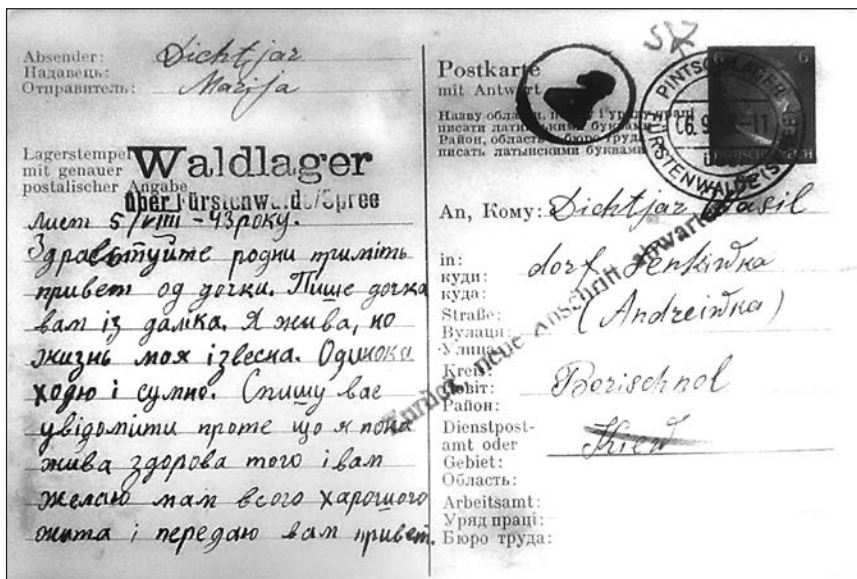 Absender: Dichtjar
Надавець:
Отправитель: Marija
Lagerstempel
mit genauer
postalischer Angabe
Waldlager
über Fürstenwalde/Spree
Лист 5/VIII - 43 року.
Здраствуйте родни приміть
привет од дочки. Пише дочка
вам із даліка. Я жива, но
жизнь моя ізвесна. Одинока
ходю і сумно. Спишу вас
увідомити проте що я пока
жива здорова того і вам
желаю мам всого харошого
жита і передаю вам привет.
Postkarte
mit Antwort
Назву області, і уряду праці
писати латинськими буквами
Район, область бюро труда
писать латынскими буквами
PINTSCHLAGER
FÜRSTENWALDE (SPREE)
An, Кому: Dichtjar Wasil
in: dorf Senkiwka
куди:
куда:
Straße: (Andreiwka)
Вулиця:
Улица:
Kreis: Borischpol
Повіт:
Район:
Dienstpost-
amt oder Kiew
Gebiet:
Область:
Arbeitsamt:
Уряд праці:
Бюро труда:
Zurück, neue Anschrift abwarten